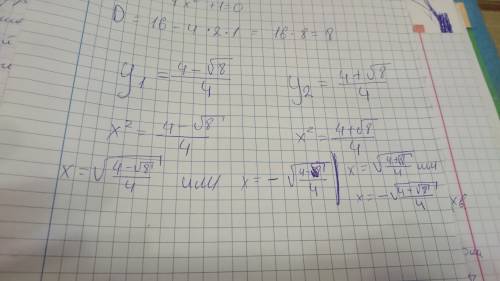 x² + 1 = 0
D = 16 - 4 · 2 · 1 = 16 - 8 = 8
y₁ = (4 - √8)/4 y₂ = (4 + √8)/4
x² = (4 - √8)/4 x² = (4 + √8)/4
x = √((4 - √8)/4) или x = - √((4 - √8)/4) | x = √((4 + √8)/4) или
x = - √((4 + √8)/4)